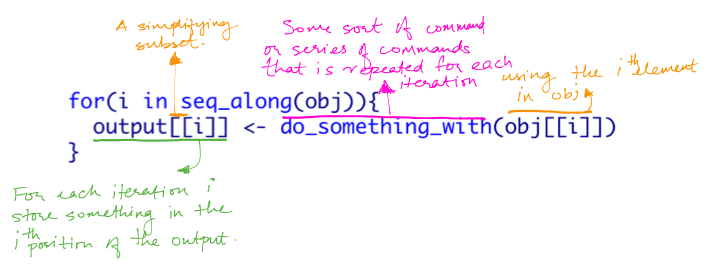 A simplifying
subset.
Some sort of command
or series of commands
that is repeated for each
iteration
using the ith element
in obj
for(i in seq_along(obj)){
  output[[i]] <- do_something_with(obj[[i]])
}
For each iteration i
store something in the
ith position of the output.